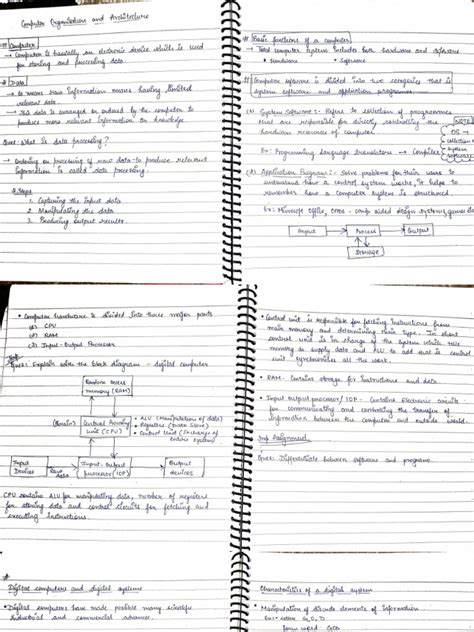 Computer Organization and Architecture
# Computer
→ Computer is basically an electronic device which is used
for storing and processing data.
# Data
→ It means raw information means having limited
relevant data.
→ This data is arranged or ordered by the computer to
produce more relevant information or knowledge.
Ques: What is data processing?
→ Ordering or processing of raw data to produce relevant
information is called data processing.
Steps
1. Capturing the input data
2. Manipulating the data
3. Producing output results.
# Basic functions of a computer
→ Total computer systems includes both hardware and software
Hardware
Software
# Computer software is divided into two categories that is
system software and application programmes.
(1) System Software :- Refers to collection of programmes
that are responsible for directly controlling the
hardware resources of computer.
Ex: Programming Language Translators → Compiler
NOTE
OS →
collection of
system
software
(2) Application Program :- Solve problems for their users to
understand how a control system works, it helps to
remember how a computer system is structured.
Ex: Microsoft Office, CADS - comp aided design systems, games
Input
Process
Output
Storage
• Computer hardware is divided into three major parts
(1) CPU
(2) RAM
(3) Input-Output Processor
Ques: Explain with the block diagram - digital computer
Random access
memory (RAM)
(Brain)
Central Processing
unit (CPU)
• ALU (Manipulation of data)
• Registers (Data Store)
• Control Unit (Incharge of
entire system)
Input
Devices
Raw
data
Input-Output
processor (IOP)
Output
devices
CPU contains ALU for manipulating data, number of registers
for storing data and control circuits for fetching and
executing instructions.
• Control unit is responsible for fetching instructions from
main memory and determining their type. In short
control unit is in charge of the system which tells
memory to supply data and ALU to add that is control
unit synchronizes all the work.
• RAM - Contains storage for instructions and data.
• Input output processor / IOP - Contains Electronic circuits
for communicating and controlling the transfer of
information between the computer and outside world.
Imp Assignment
Ques: Differentiate between software and programs.
#
Digital computers and digital systems
• Digital computers have made possible many scientific
industrial and commercial advances.
Characteristics of a digital system
• Manipulation of discrete elements of information
Ex:- letters